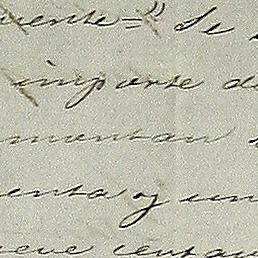 uente=" Se
importe de
montan
enta y un
eve centav